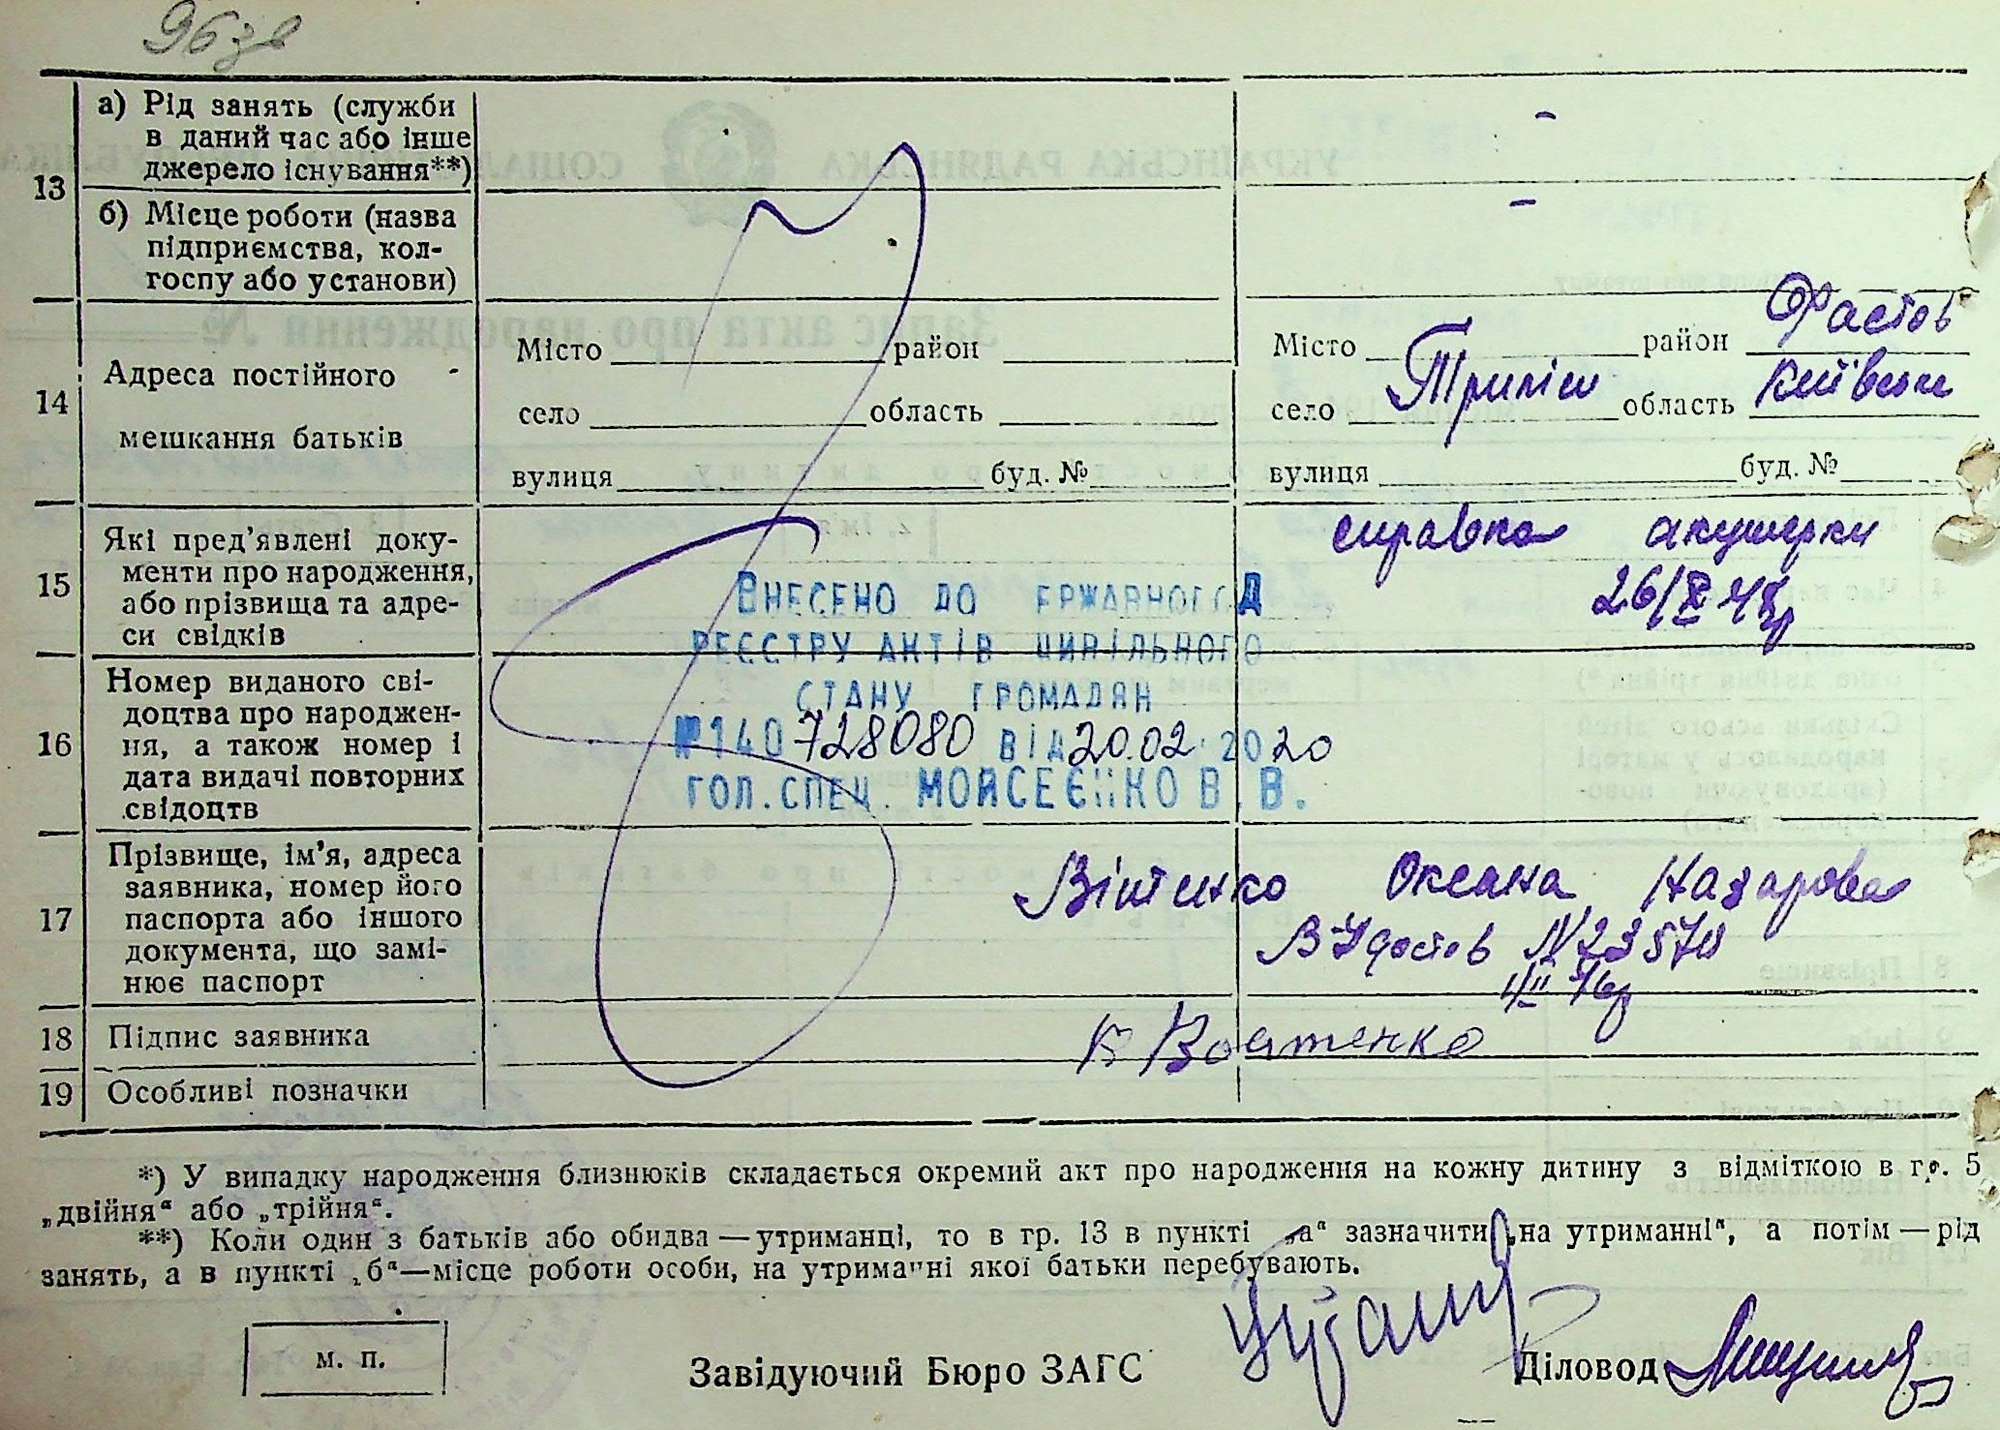 96зв
13
а) Рід занять (служби
в даний час або інше
джерело існування**)
-
б) Місце роботи (назва
підприємства, кол-
госпу або установи)
-
14
Адреса постійного
мешкання батьків
Місто район
село область
вулиця буд. №
Місто район Фастов
село область Київськ
вулиця буд. №
15
Які пред’явлені доку-
менти про народження,
або прізвища та адре-
си свідків
справка акушерки
26/X
ВНЕСЕНО ДО ЕРЖАВНОГО Д
РЕЄСТРУ АКТІВ ЦИВІЛЬНОГО
СТАНУ ГРОМАДЯН
№140728080 ВІД 20.02.2020
ГОЛ.СПЕЦ. МОЙСЕЄНКО В.В.
16
Номер виданого сві-
доцтва про народжен-
ня, а також номер і
дата видачі повторних
свідоцтв
17
Прізвище, ім’я, адреса
заявника, номер його
паспорта або іншого
документа, що замі-
нює паспорт
Оксана Назарова
N 23570
18
Підпис заявника
19
Особливі позначки
*) У випадку народження близнюків складається окремий акт про народження на кожну дитину з відміткою в гр. 5
„двійня“ або „трійня“.
**) Коли один з батьків або обидва — утриманці, то в гр. 13 в пункті „а“ зазначити „на утриманні“, а потім — рід
занять, а в пункті „б“—місце роботи особи, на утриманні якої батьки перебувають.
м. п.
Завідуючий Бюро ЗАГС
Діловод